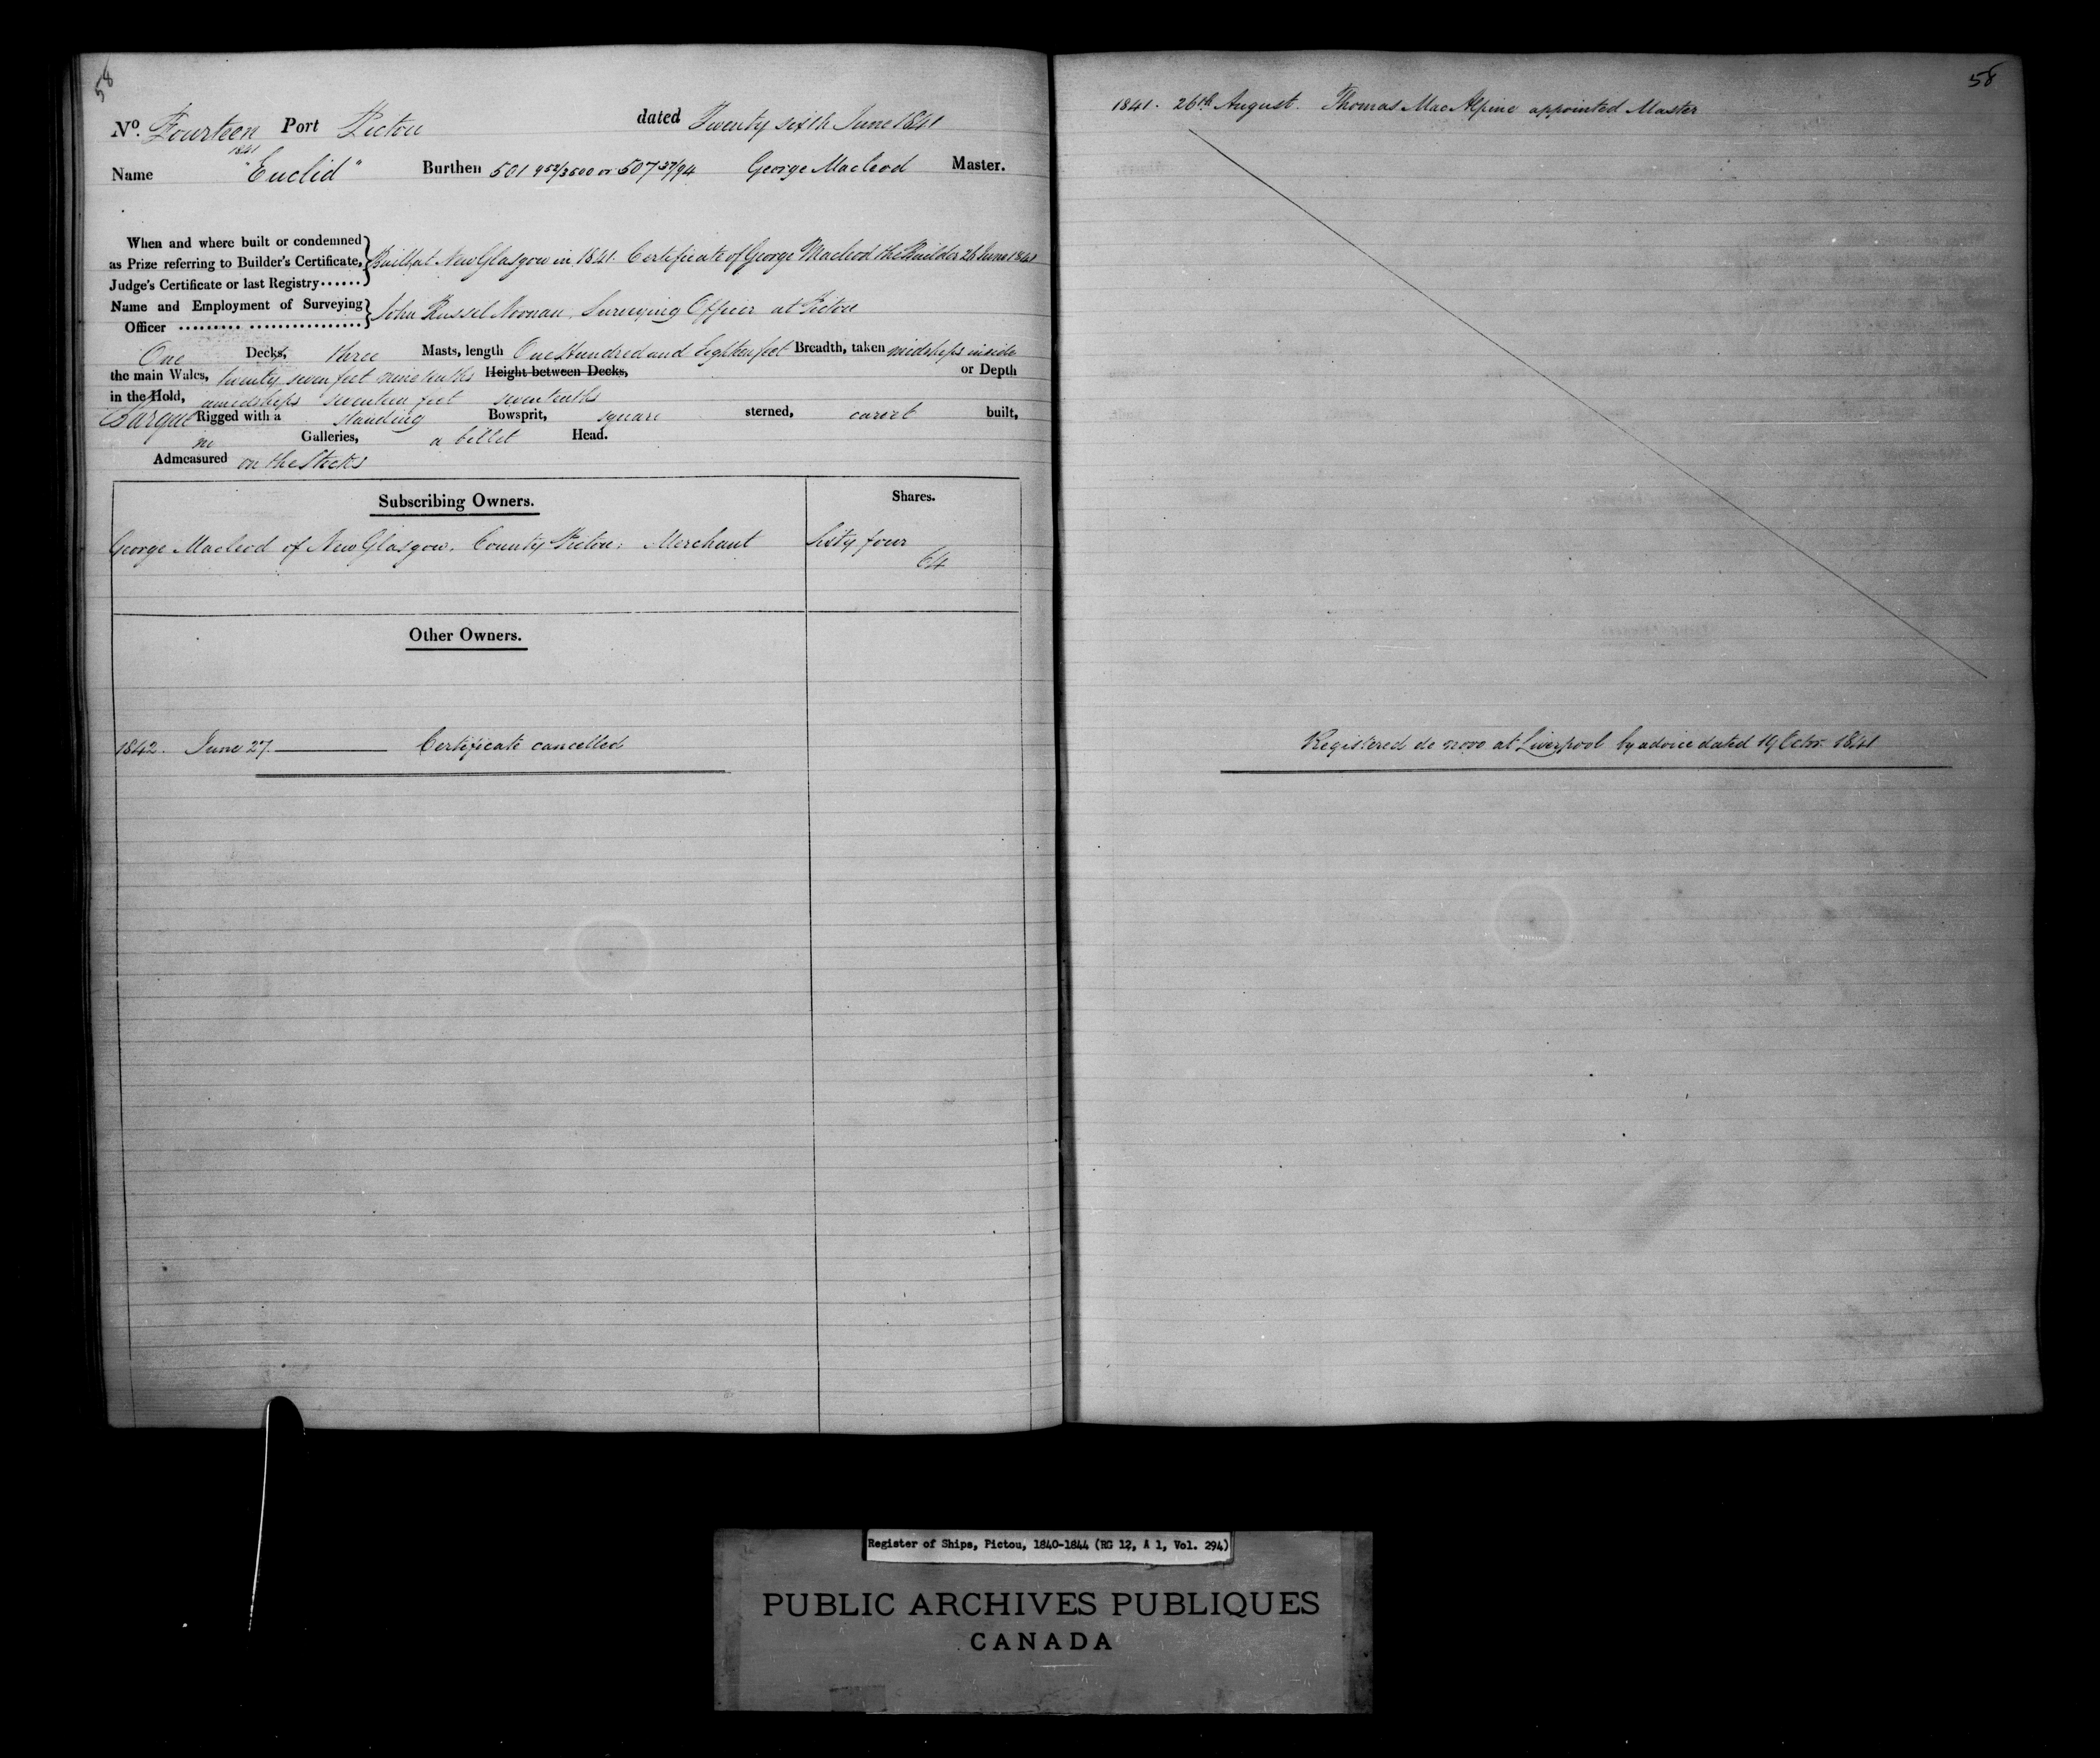 58
No. Fourteen Port Pictou dated Twenty sixth June 1841
1841
Name "Euclid" Burthen 501 952/3500 or 507 37/94 George Macleod Master.
When and where built or condemned
as Prize referring to Builder's Certificate, Built at New Glasgow in 1841. Certificate of George Macleod the Builder 26 June 1841
Judge's Certificate or last Registry......
Name and Employment of Surveying John Russel Noonan, Surveying Officer at Pictou
Officer
One Decks, three Masts, length One Hundred and Eighteen feet Breadth, taken midships inside
the main Wales, twenty seven feet nine tenths Height between Decks, or Depth
in the Hold, amidships seventeen feet seven tenths
Barque Rigged with a standing Bowsprit, square sterned, carvel built,
no Galleries, a billet Head.
Admeasured on the Stocks
Subscribing Owners. Shares.
George Macleod of New Glasgow, County Pictou; Merchant Sixty four
64
Other Owners.
1842. June 27. Certificate cancelled
58
1841. 26th August. Thomas MacAlpine appointed Master
Registered de novo at Liverpool by advice dated 19 Octr. 1841
Register of Ships, Pictou, 1840-1844 (RG 12, A 1, Vol. 294)
PUBLIC ARCHIVES PUBLIQUES
CANADA